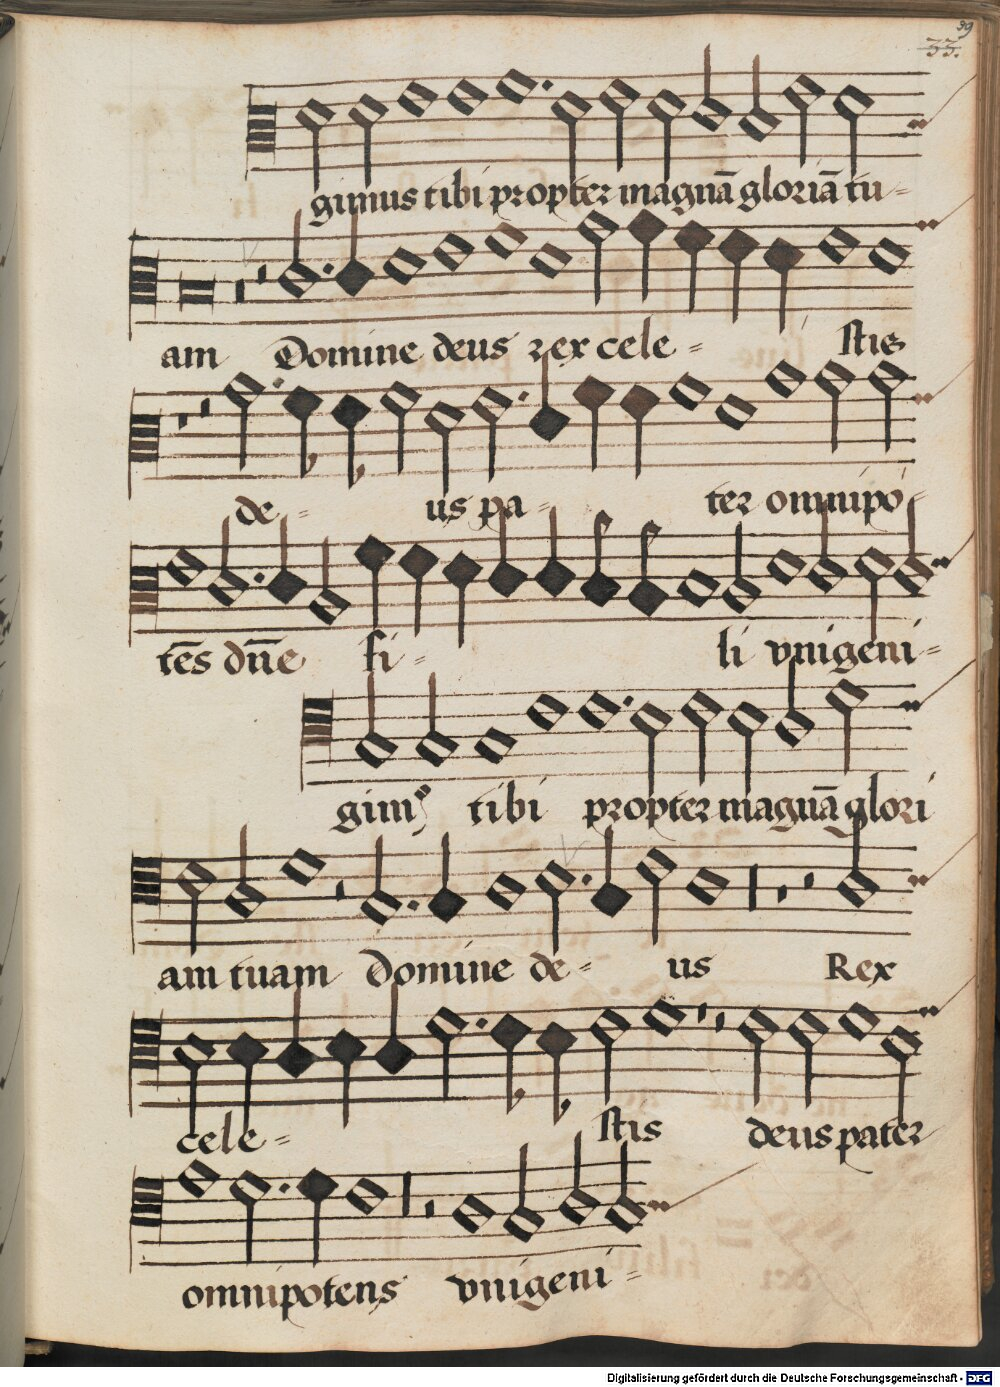 39
33.
gimus tibi propter magnā gloriā tu-
am Domine deus rex cele- stis
de- us pa- ter omnipo-
tēs dn̄e fi- li vnigeni-
gimꝰ tibi propter magnā glori
am tuam Domine de- us Rex
cele- stis deus pater
omnipotens vnigeni-
Digitalisierung gefördert durch die Deutsche Forschungsgemeinschaft - DFG